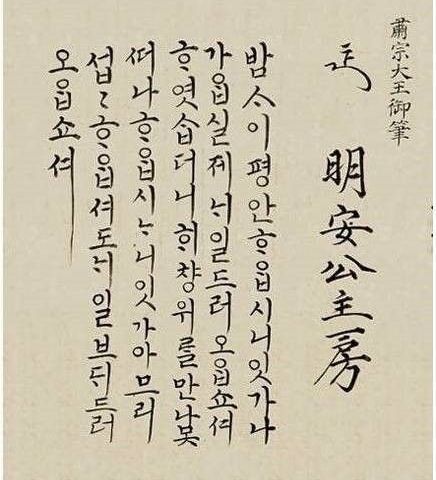 肅宗大王御筆
明安公主房
밤ᄉᆞ이평안ᄒᆞᄋᆞᆸ시니잇가나
가ᄋᆞᆸ실제ᄂᆡ일드러오ᄋᆞᆸ쇼셔
ᄒᆞ엿ᄉᆞᆸ더니ᄒᆡ챵위를만나못
ᄯᅥ나ᄒᆞᄋᆞᆸ시ᄂᆞ니잇가아므리
섭〻ᄒᆞᄋᆞᆸ셔도ᄂᆡ일브ᄃᆡ드러
오ᄋᆞᆸ쇼셔